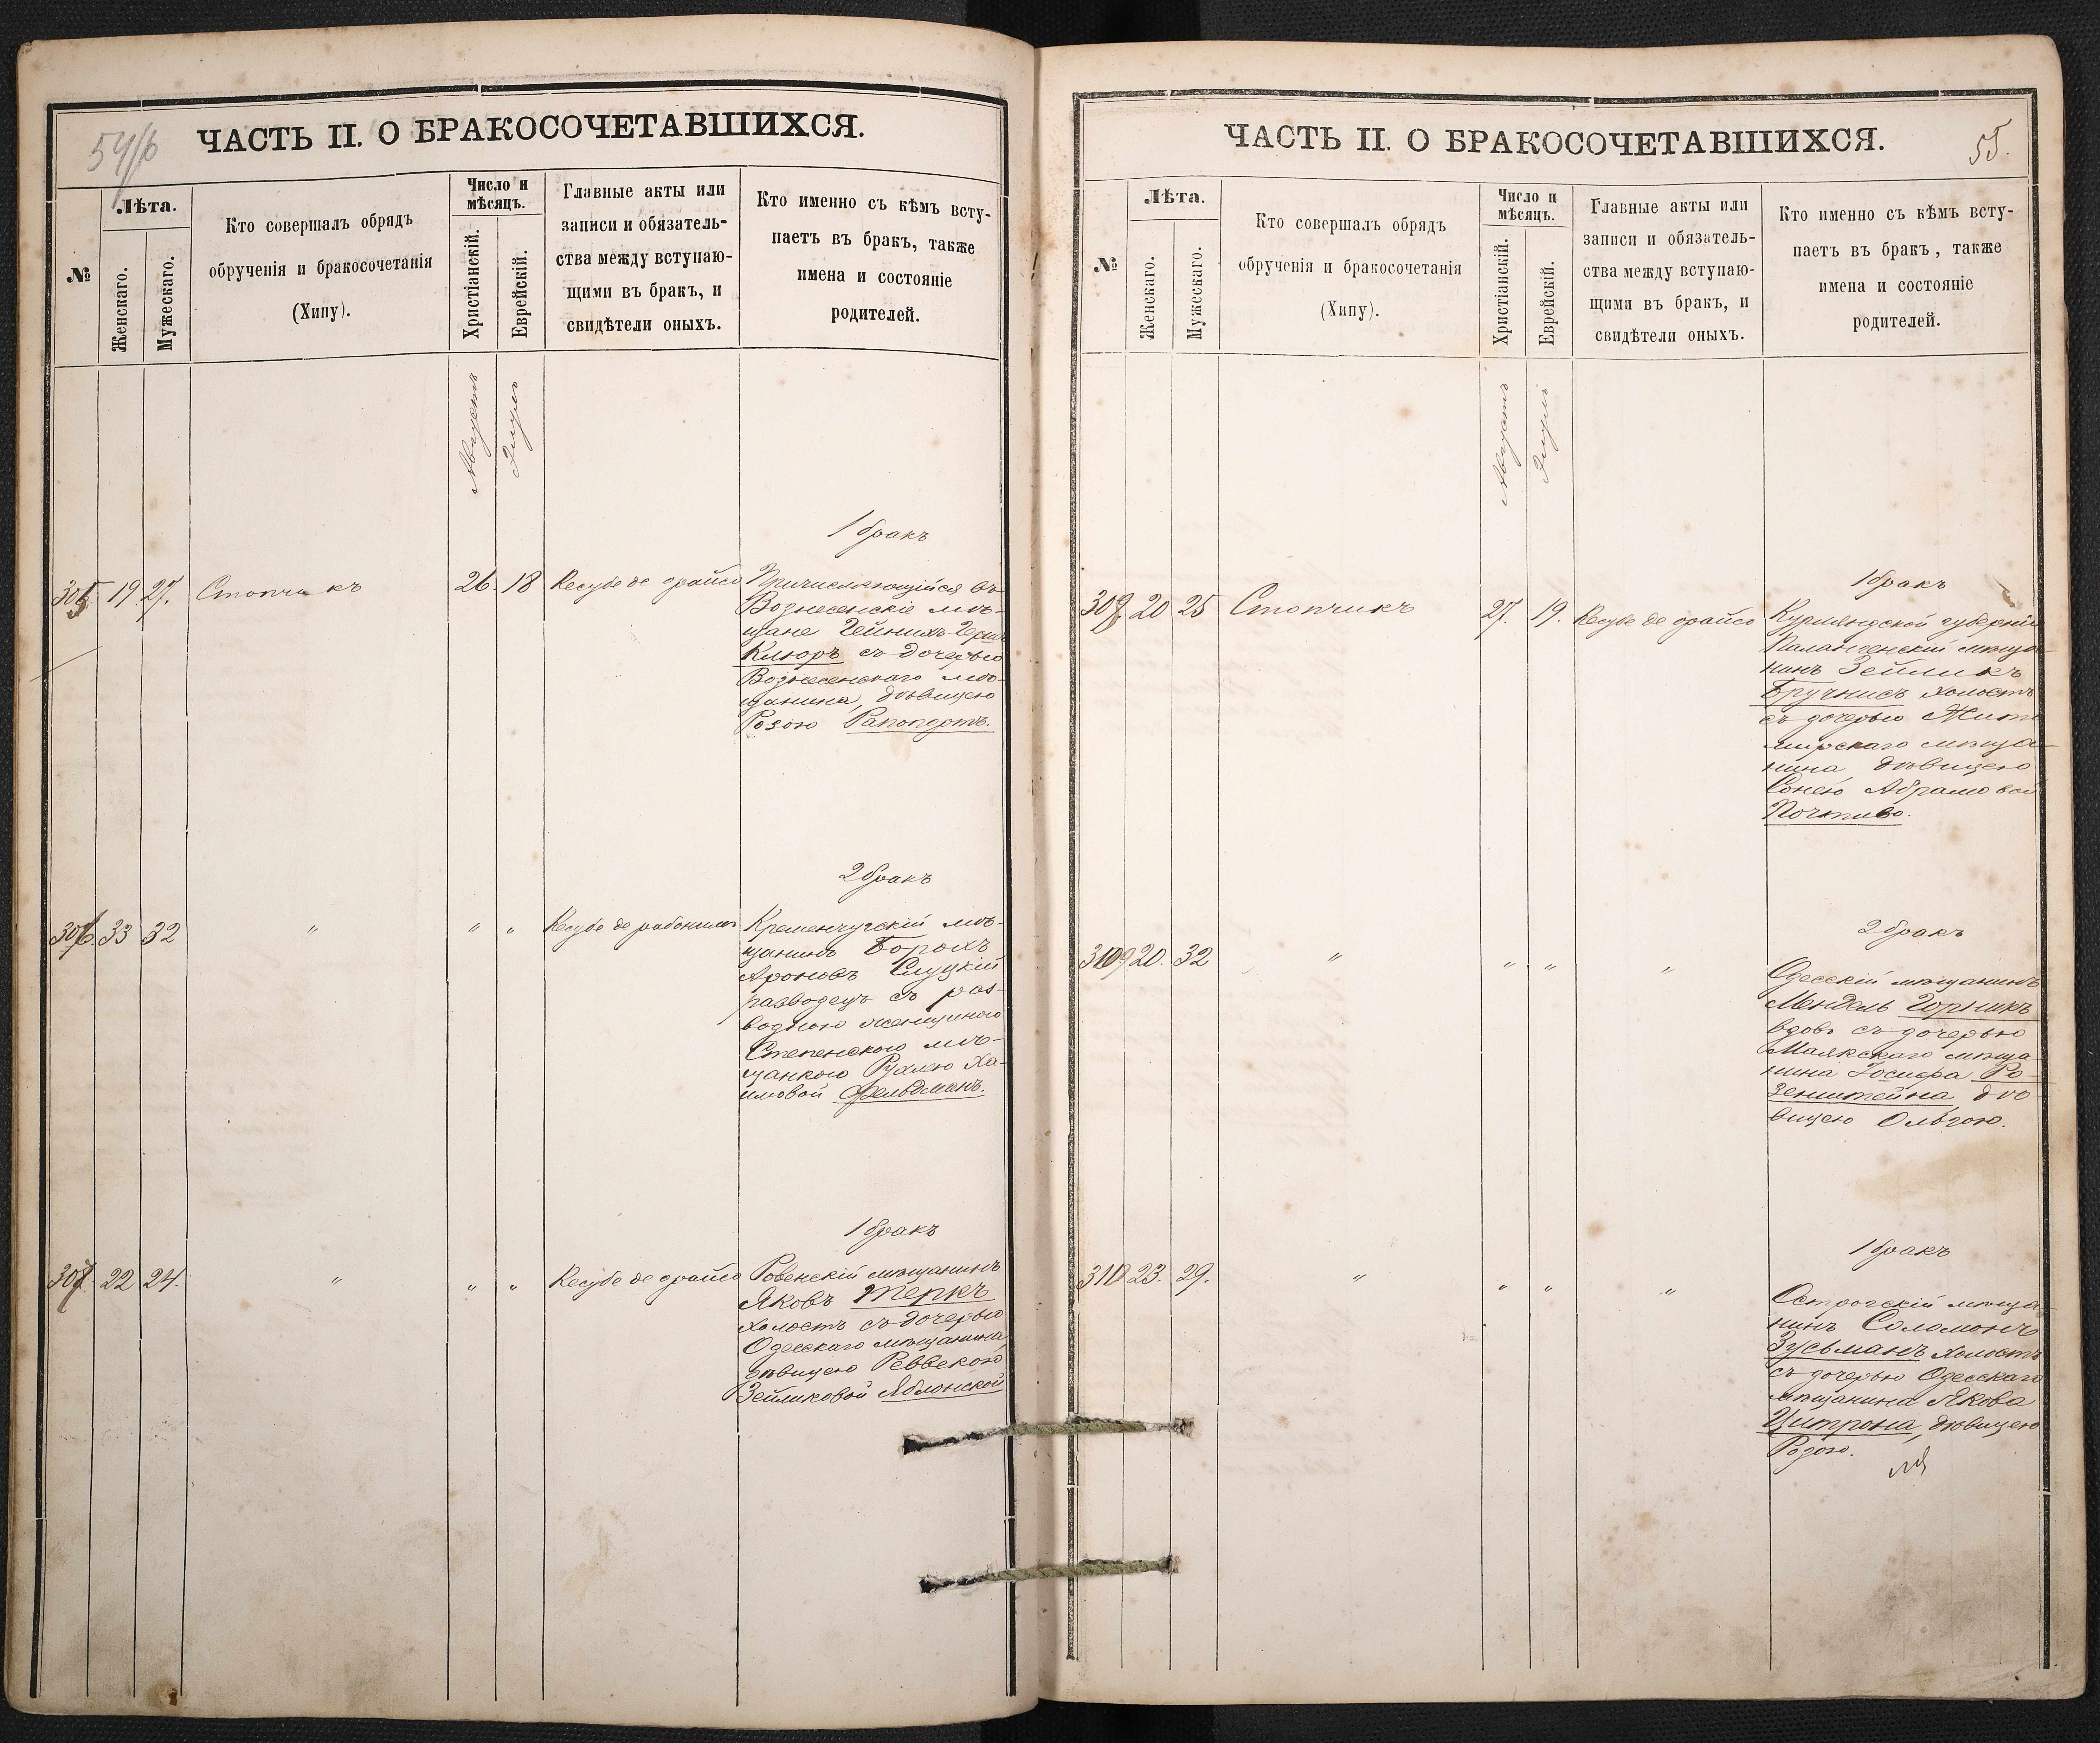 54/б
ЧАСТЬ II. О БРАКОСОЧЕТАВШИХСЯ.
№
Лѣта.
Женскаго.
Мужескаго.
Кто совершалъ обрядъ
обрученія и бракосочетанія
(Хипу).
Число и
мѣсяцъ.
Христіанскій.
Еврейскій.
Главные акты или
записи и обязатель-
ства между вступаю-
щими въ бракъ, и
свидѣтели оныхъ.
Кто именно съ кѣмъ всту-
паетъ въ бракъ, также
имена и состояніе
родителей.
Августъ
Элулъ
1 бракъ
305 19 27. Стопчикъ 26. 18 Кесубе де орайсо
Причисляющійся въ
Вознесенскіе мѣ-
щане
Клюръ съ дочерью
Вознесенскаго мѣ-
щанина, дѣвицею
Розою Рапопортъ.
2 бракъ
306 33 32 " " " Кесубе де рабонимъ
Кременчугскій мѣ-
щанинъ Борохъ
Ароновъ Слуцкій
разводецъ съ раз-
водною женщиною
Степенскою мѣ-
щанкою Рухлею Ха-
имовой Фельдманъ.
1 бракъ
307. 22 24. " " " Кесубе де орайсо
Ровенскій мѣщанинъ
Яковъ Теркъ
холостъ съ дочерью
Одесскаго мѣщанина,
дѣвицею Реввекою
Зейликовой Яблонской
ЧАСТЬ II. О БРАКОСОЧЕТАВШИХСЯ.
55.
№
Лѣта.
Женскаго.
Мужескаго.
Кто совершалъ обрядъ
обрученія и бракосочетанія
(Хипу).
Число и
мѣсяцъ.
Христіанскій.
Еврейскій.
Главные акты или
записи и обязатель-
ства между вступаю-
щими въ бракъ, и
свидѣтели оныхъ.
Кто именно съ кѣмъ всту-
паетъ въ бракъ, также
имена и состояніе
родителей.
Августъ
Элулъ
1 бракъ
20 25 Стопчикъ 27. 19. Кесубе де орайсо
Курляндской губерніи
Палангенскій мѣща-
нинъ Зейликъ
Бручнисъ холостъ
съ дочерью
мѣща-
нина, дѣвицею
Сонею Абрамовой
2 бракъ
20. 32 " " " "
Одесскій мѣщанинъ
Мендель Горникъ
вдовъ съ дочерью
Маякскаго мѣща-
нина Іосифа Ро-
зенштейна дѣ-
вицею Ольгою.
1 бракъ
310 23. 29. " " " "
Острогскій мѣща-
нинъ Соломонъ
Зусьманъ холостъ
съ дочерью Одесскаго
мѣщанина Якова
Цитрона, дѣвицею
Розою.